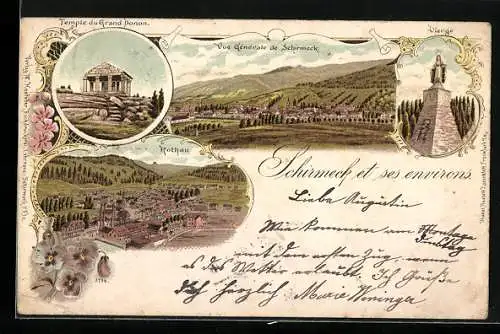 Temple du Grand Donon.
Vue Générale de Schirmeck
Vierge
Rothau
Schirmeck et ses environs.
Liebe Augustin
Wir kommen am Montag
mit dem ersten Zug, wenn
es das Wetter erlaubt. Ich Grüße
Dich herzlich Marie Wininger